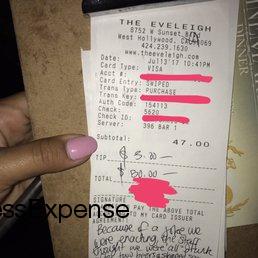 THE EVELEIGH
8752 W Sunset Bl
West Hollywood, CA 90069
424.239.1630
www.theeveleigh.com
Date: Jul13'17 10:41PM
Card Type: VISA
Acct #:
Card Entry: SWIPED
Trans Type: PURCHASE
Trans Key:
Auth Code: 154113
Check: 5620
Check ID:
Server: 396 BAR 1
Subtotal: 47.00
TIP $ 5.00 —
TOTAL $ 80.00 —
SIGNATURE
PAY THE ABOVE TOTAL
TO MY CARD ISSUER
AGREEMENT
essExpense
Because of a joke we
were enacting the staff
thought we were all drunk
DINNER